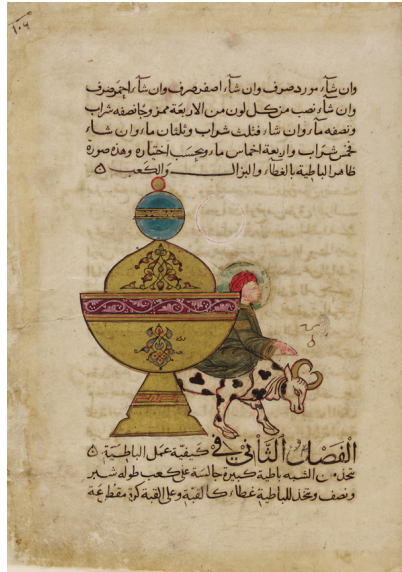 ١٠٦
وان شآء مورد صرف وان شآء اصفر صرف وان شآء احمر صرف
وان شآء نصب من كل لون من الاربعة ممزوجًا نصفه شراب
ونصفه مآء وان شاء فثلث شراب وثلثان مآء وان شاء
فخمس شراب واربعة اخماس مآء وبحسب اختياره وهذه صورة
ظاهر الباطية بالغطآء والبزال والكعب ٥
الفصل الثاني في كيفية عمل الباطية ٥
تتخذ من الشبه باطية كبيرة جالسة على كعب طوله شبر
ونصف وتتخذ للباطية غطآء كالقبة وعلى القبة كرة مقطعة